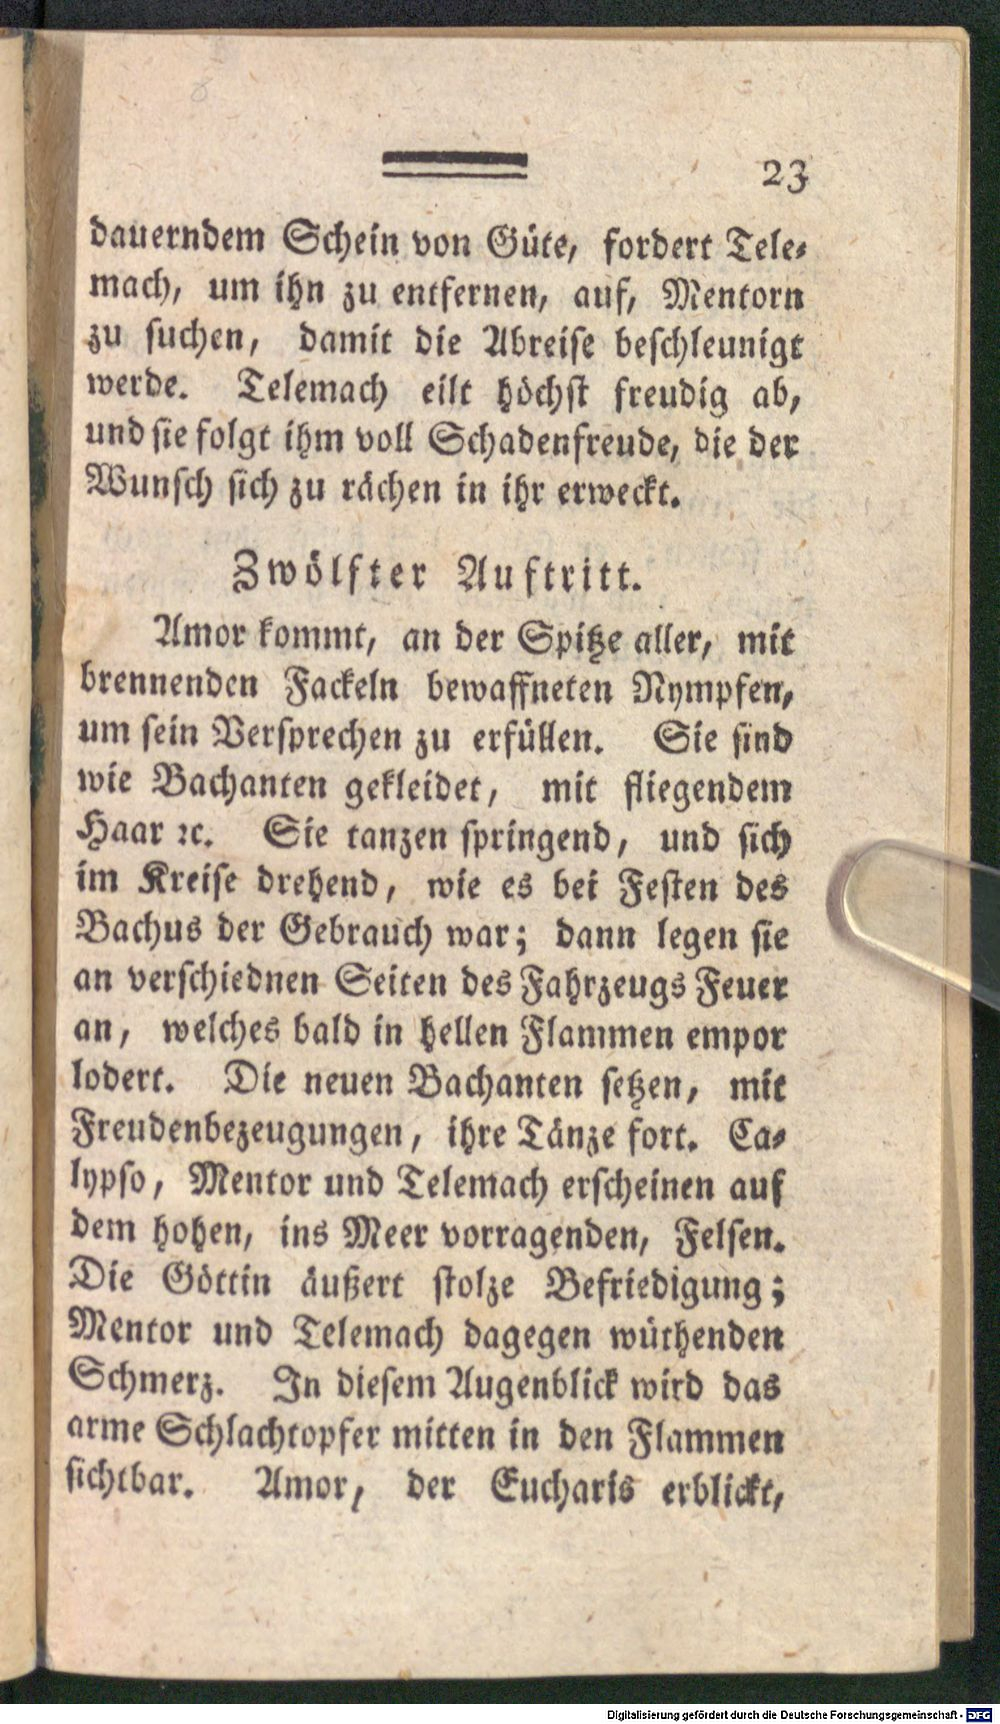 23
dauerndem Schein von Güte, fordert Tele-
mach, um ihn zu entfernen, auf, Mentorn
zu suchen, damit die Abreise beschleunigt
werde. Telemach eilt höchst freudig ab,
und sie folgt ihm voll Schadenfreude, die der
Wunsch sich zu rächen in ihr erweckt.
Zwölfter Auftritt.
Amor kommt, an der Spitze aller, mit
brennenden Fackeln bewaffneten Nympfen,
um sein Versprechen zu erfüllen. Sie sind
wie Bachanten gekleidet, mit fliegendem
Haar ꝛc. Sie tanzen springend, und sich
im Kreise drehend, wie es bei Festen des
Bachus der Gebrauch war; dann legen sie
an verschiednen Seiten des Fahrzeugs Feuer
an, welches bald in hellen Flammen empor
lodert. Die neuen Bachanten setzen, mit
Freudenbezeugungen, ihre Tänze fort. Ca-
lypso, Mentor und Telemach erscheinen auf
dem hohen, ins Meer vorragenden, Felsen.
Die Göttin äußert stolze Befriedigung;
Mentor und Telemach dagegen wüthenden
Schmerz. In diesem Augenblick wird das
arme Schlachtopfer mitten in den Flammen
sichtbar. Amor, der Eucharis erblickt,
Digitalisierung gefördert durch die Deutsche Forschungsgemeinschaft - DFG